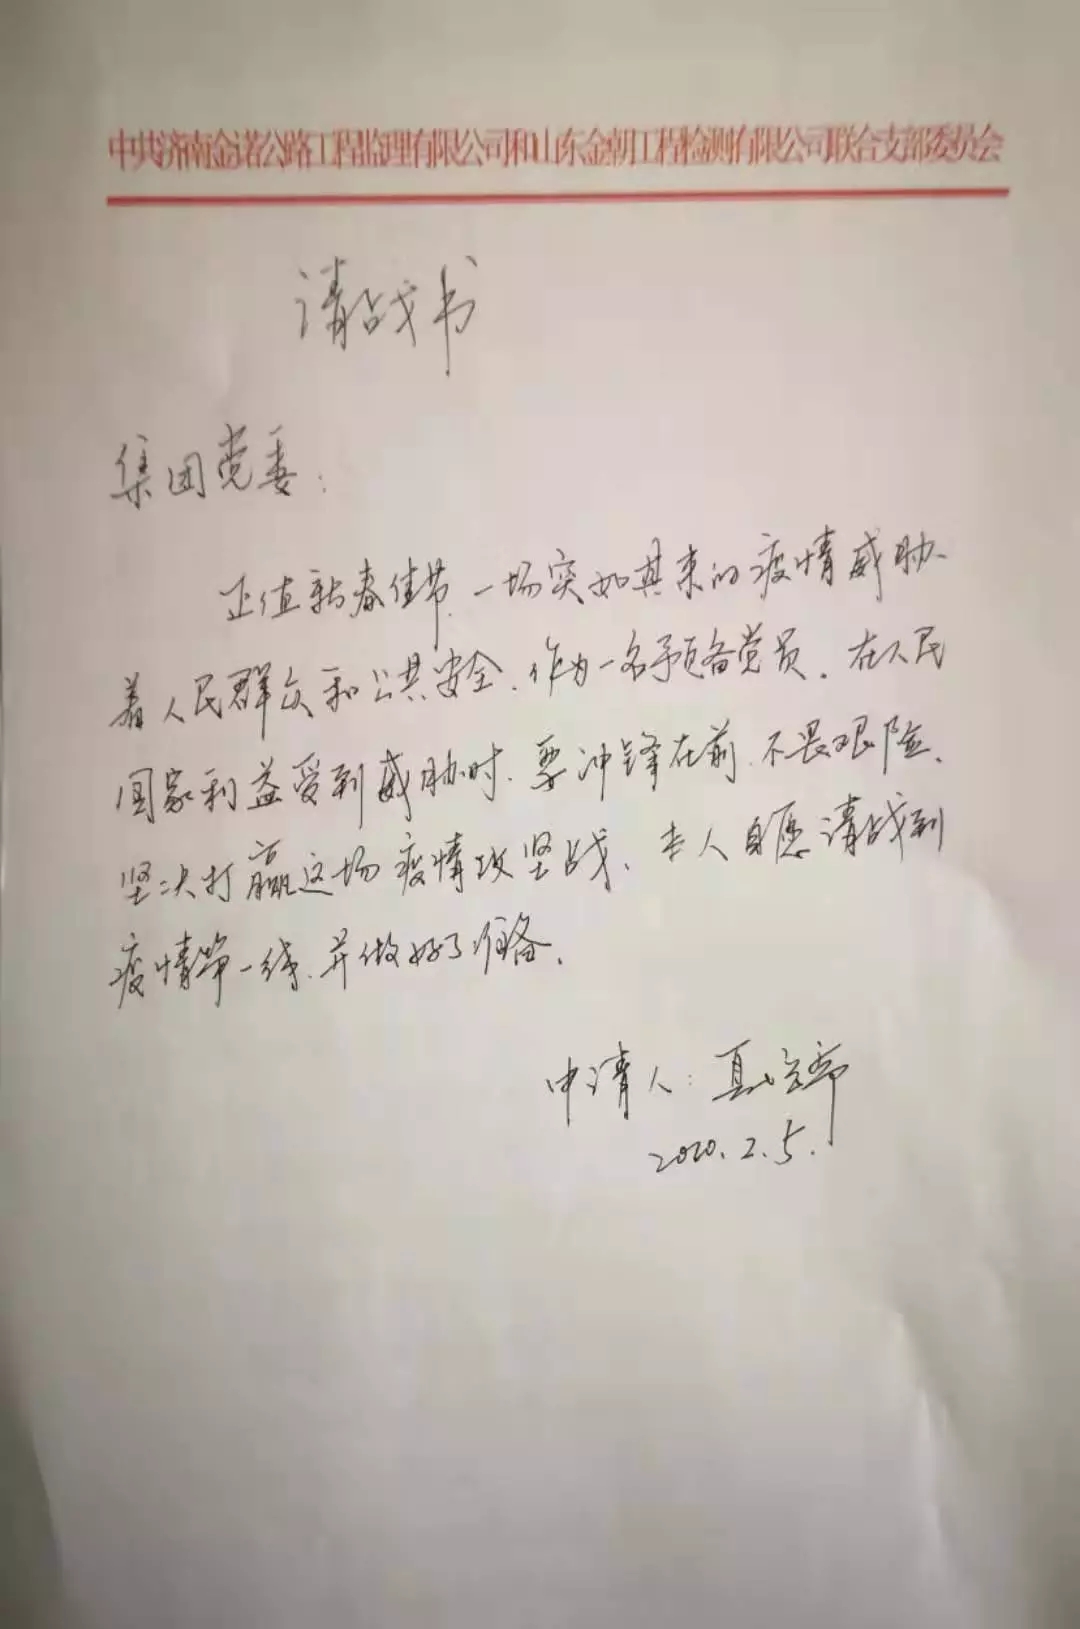 中共济南金诺公路工程监理有限公司和山东金朝工程检测有限公司联合支部委员会
请战书
集团党委：
正值新春佳节，一场突如其来的疫情威胁
着人民群众和公共安全，作为一名预备党员，在人民
国家利益受到威胁时，要冲锋在前，不畏艰险，
坚决打赢这场疫情攻坚战，本人自愿请战到
疫情第一线，并做好了准备。
申请人：
2020.2.5.